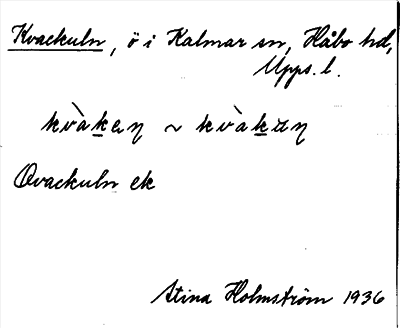 Kvackuln, ö i Kalmar sn, Håbo hd,
Upps. l.
kvàken ~ kvàkun
Qvackuln ek
Stina Holmström 1936